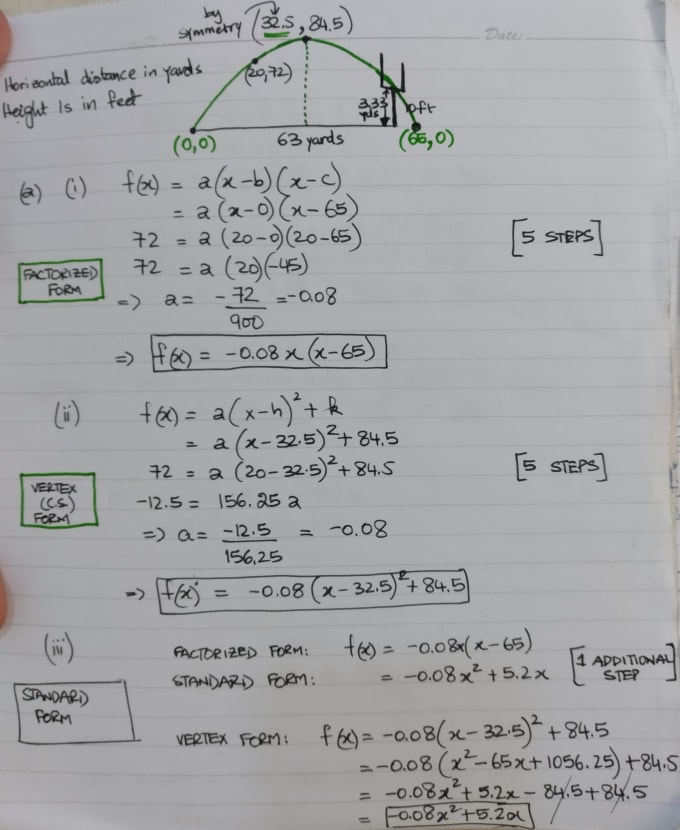 by
symmetry (32.5, 84.5)
Date:
Horizontal distance in yards
(20,72)
Height is in feet
3.33 yds
10ft
(0,0)
63 yards
(65,0)
(a) (i) f(x) = a(x-b)(x-c)
= a(x-0)(x-65)
72 = a(20-0)(20-65) [5 STEPS]
72 = a(20)(-45)
FACTORIZED
FORM
=> a = -72/900 = -0.08
=> f(x) = -0.08x(x-65)
(ii) f(x) = a(x-h)² + k
= a(x-32.5)² + 84.5
72 = a(20-32.5)² + 84.5 [5 STEPS]
VERTEX
(C.S.)
FORM
-12.5 = 156.25a
=> a = -12.5/156.25 = -0.08
=> f(x) = -0.08(x-32.5)² + 84.5
(iii) FACTORIZED FORM: f(x) = -0.08x(x-65)
STANDARD FORM: = -0.08x² + 5.2x
[1 ADDITIONAL
STEP]
STANDARD
FORM
VERTEX FORM: f(x) = -0.08(x-32.5)² + 84.5
= -0.08(x²-65x+1056.25)+84.5
= -0.08x² + 5.2x - 84.5 + 84.5
= -0.08x² + 5.2x